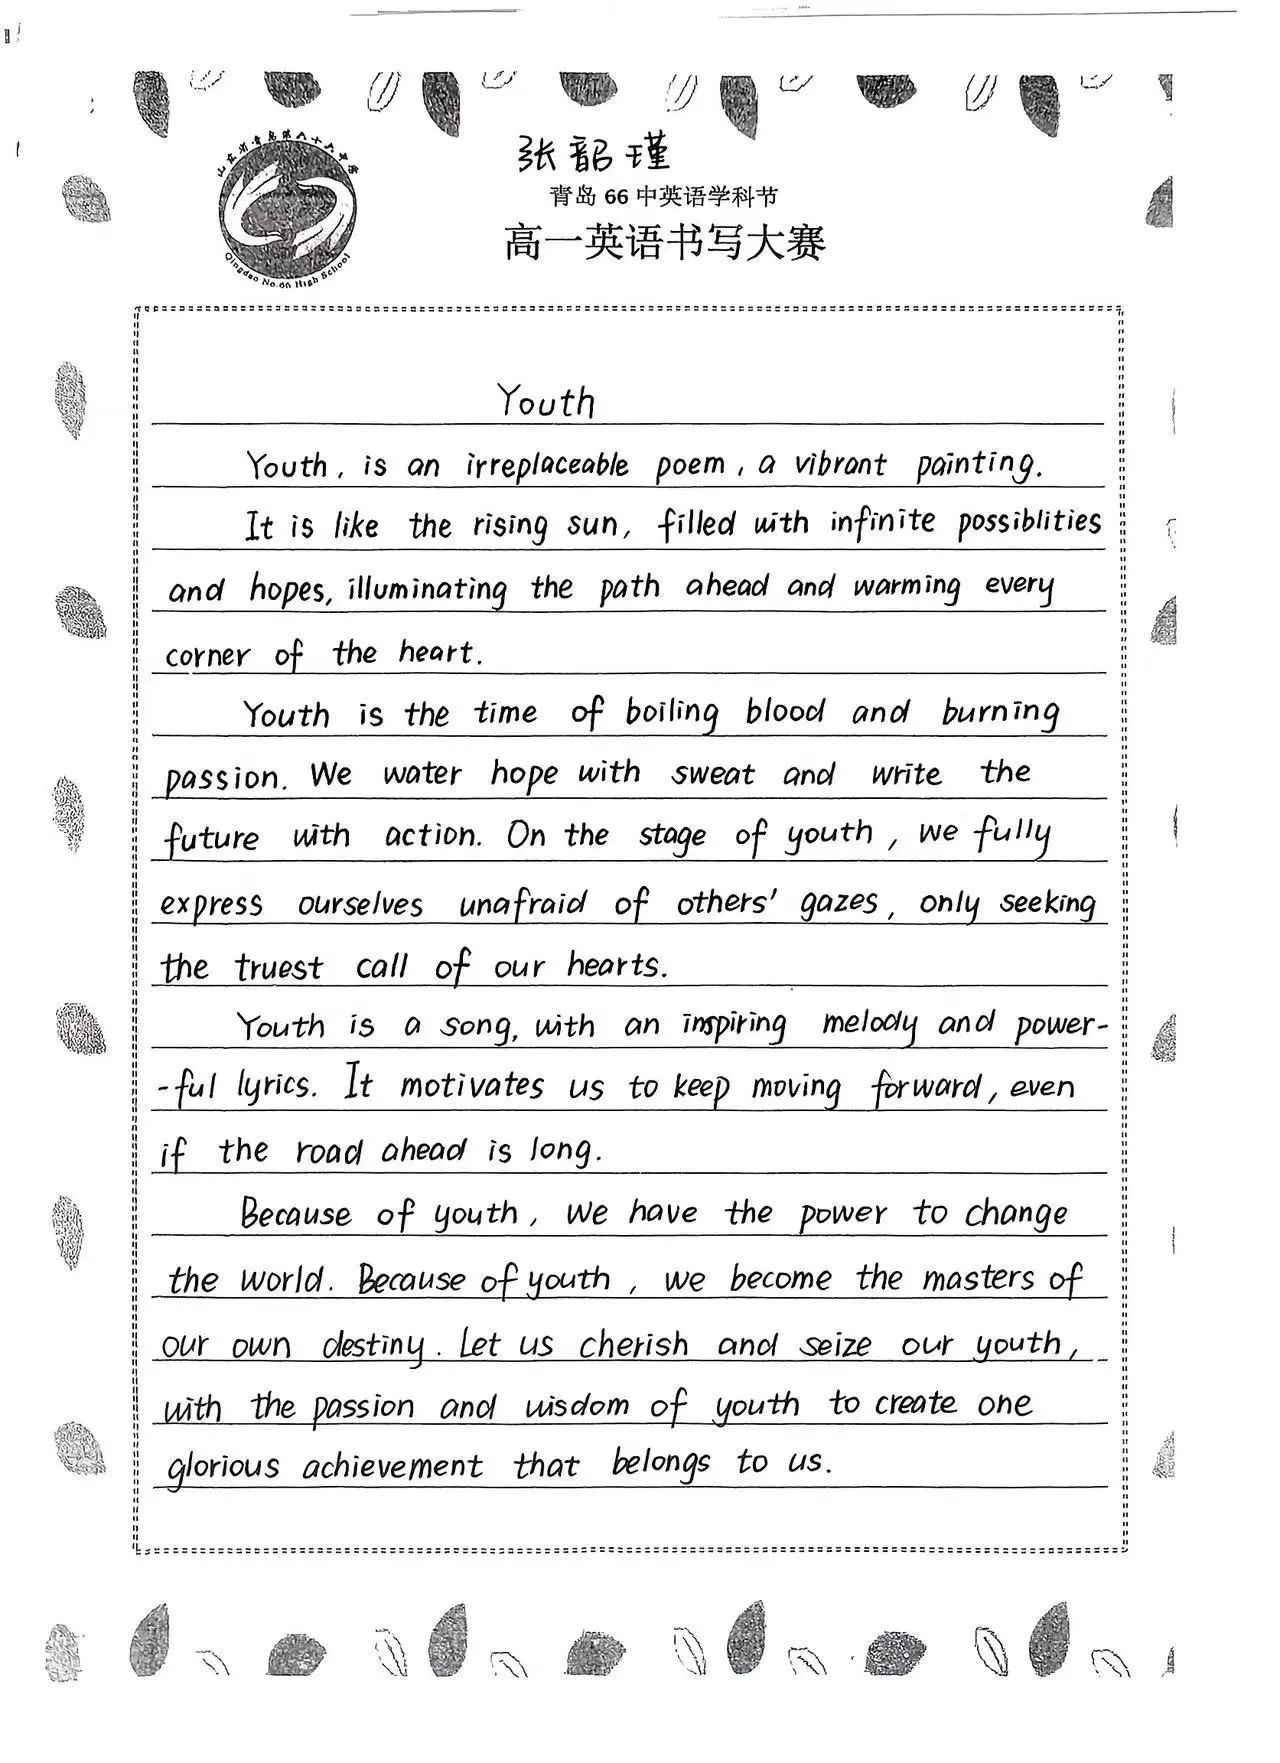 山东省青岛第六十六中学
Qingdao No.66 High School
张韶瑾
青岛 66 中英语学科节
高一英语书写大赛
Youth
Youth, is an irreplaceable poem, a vibrant painting.
It is like the rising sun, filled with infinite possiblities
and hopes, illuminating the path ahead and warming every
corner of the heart.
Youth is the time of boiling blood and burning
passion. We water hope with sweat and write the
future with action. On the stage of youth, we fully
express ourselves unafraid of others' gazes, only seeking
the truest call of our hearts.
Youth is a song, with an inspiring melody and power-
-ful lyrics. It motivates us to keep moving forward, even
if the road ahead is long.
Because of youth, we have the power to change
the world. Because of youth, we become the masters of
our own destiny. Let us cherish and seize our youth,
with the passion and wisdom of youth to create one
glorious achievement that belongs to us.